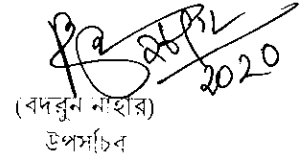 2020
(বদরুন নাহার)
উপসচিব